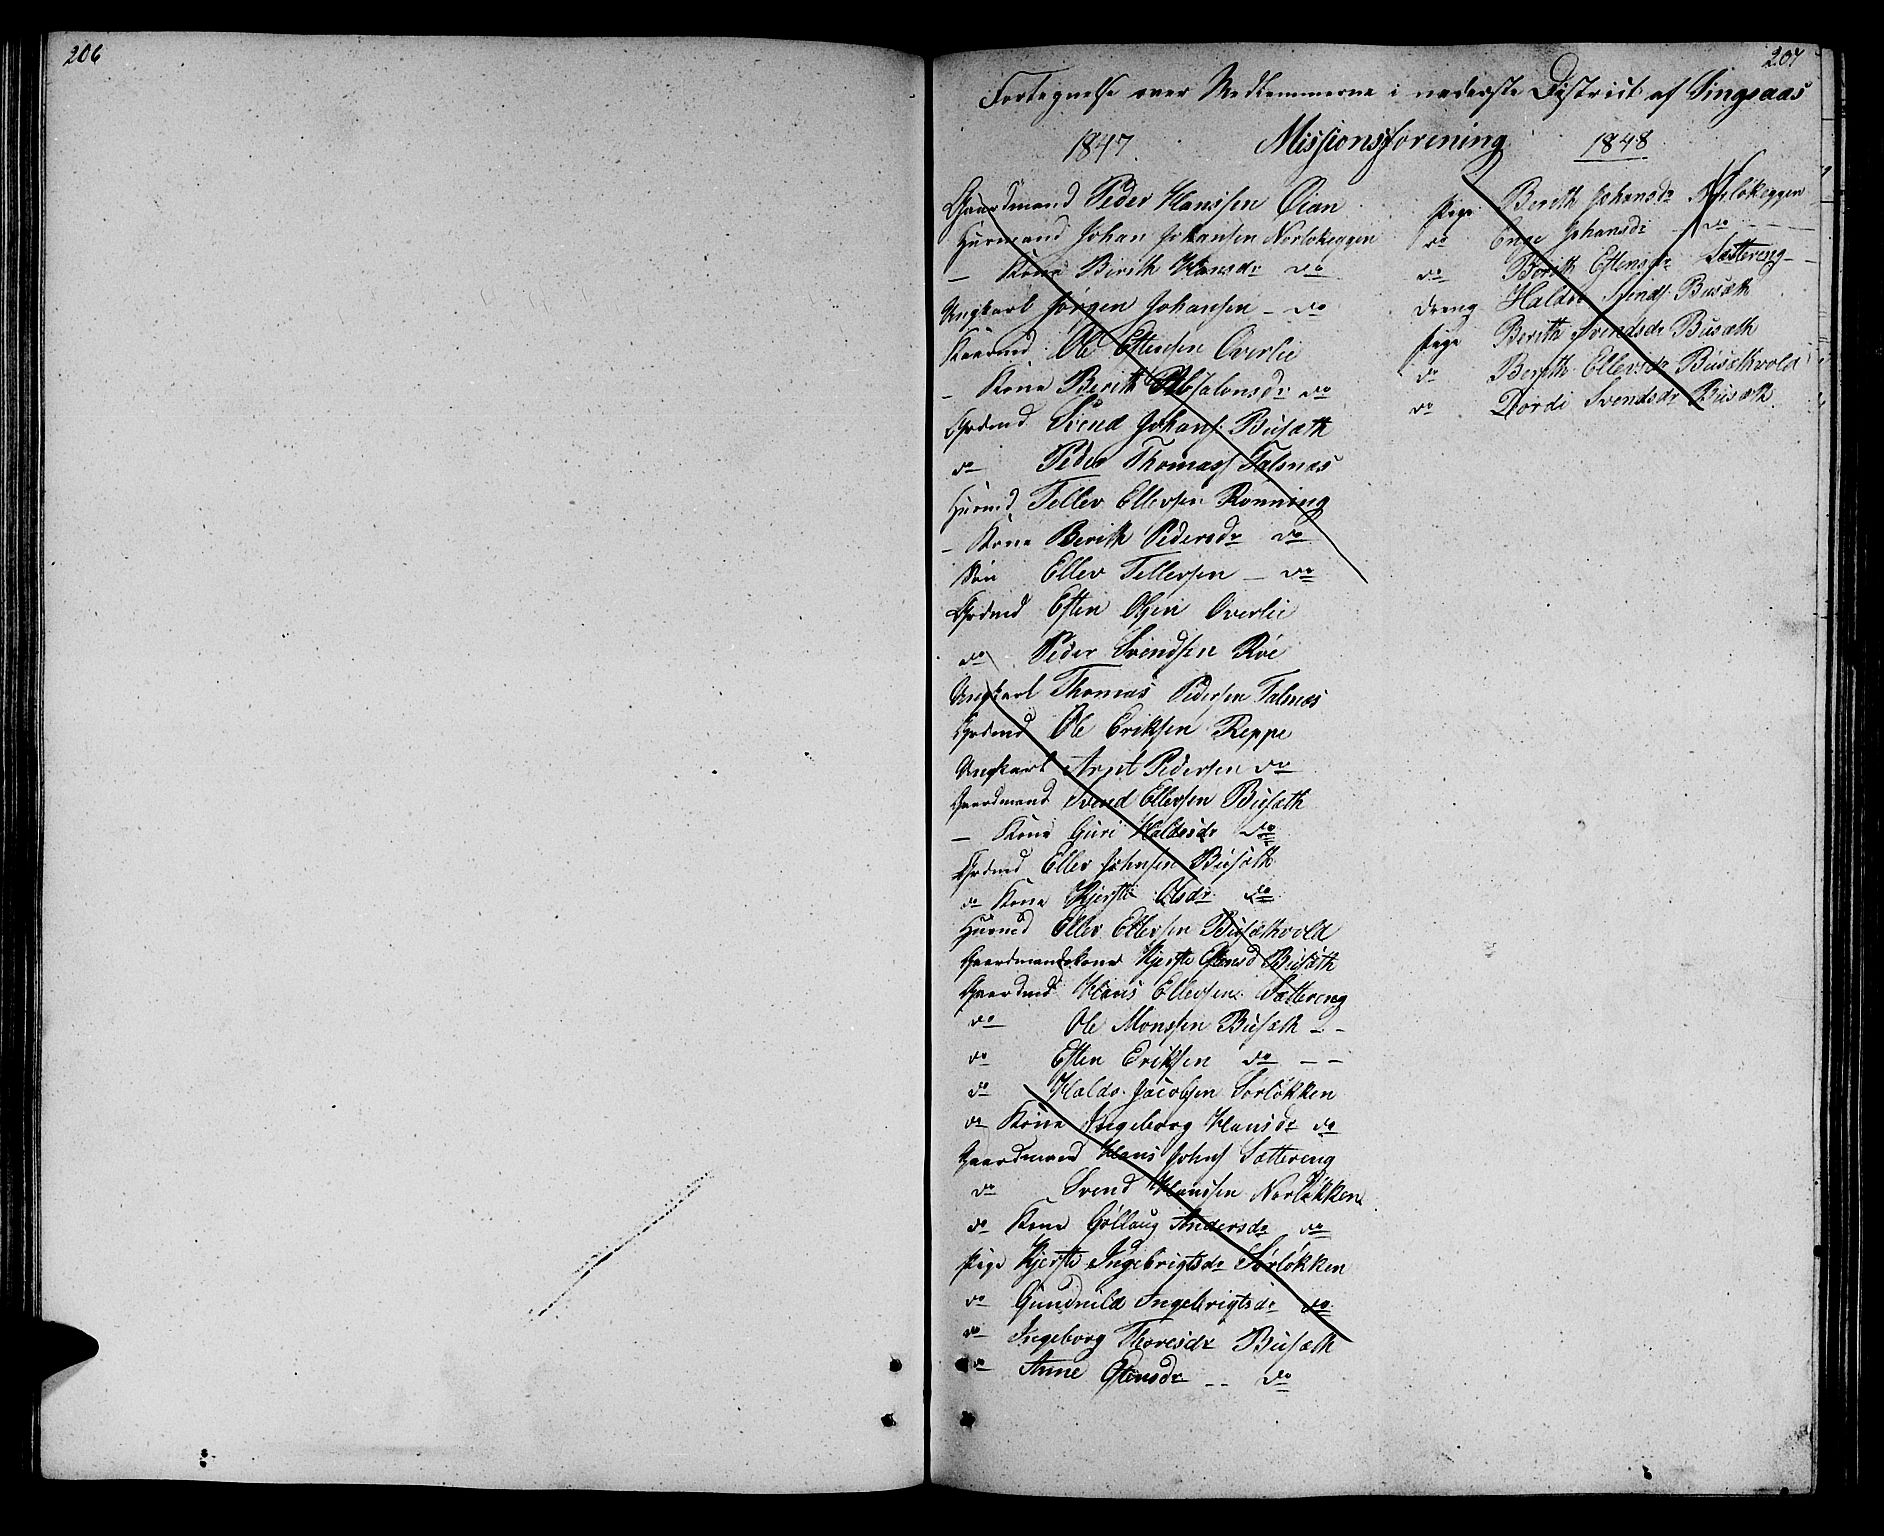 206
207
Fortegnelse over Medlemmerne i nederste District af Singsaas
1847 Missionsforening 1848
Gaardmand Peder Hanssen Øian
Huusmand Johan Johansen Norløkeggen
— Kone Berith Hansdr do
Ungkarl Jørgen Johansen – do
Ole Estensen Overlie
– Kone Berith Absalonsdr do
Grdmd Svend Johans: Busæth
do Peder Thomass Talsnæs
Huusmd Tellev Ellevsen Rønning
– Kone Berith Pedersdr do
Søn Ellev Tellevsen – do
Grdmd Esten Olsen Overlie
do Peder Svendsen Roe
Ungkarl Thomas Pedersen Talsnæs
Grdmd Ole Eriksen Reppe
Ungkarl Arnt Pedersen do
Gaardmand Svend Ellevsen Busæth
— Kone Guri Haldosdr do
Grdmd Ellev Johnsen Busæth
do Kone Kjersti Olsdr do
Huusmd Ellev Ellevsen Busæthvold
Gaardmandskone Kjersti Estensd Busæth
Gaardmd Hans Ellevsen Sættereng
do Ole Monssen Busæth – –
do Esten Eriksen do – –
do Haldo Jacobsen Sørløkken
do Kone Ingeborg Hansdr do
Gaardmand Hans Johns Sættereng
do Svend Hanssen Norløkken
do Kone Gollaug Andersdr do
Pige Kjersti Ingebrigtsdr Sørløkken
do Gundhild Ingebrigtsdr do
do Ingeborg Thoresdr Busæth
do Anne Estensdr – – do
Pige Berith Johansdr Norløkeggen
do Johansdr – do – –
do Berith Estensdr Sættereng –
Dreng Haldo Svends: Busæth
Pige Berith Svendsdr Busæth
do Berith Ellevsdr Busæthvold
do Dordi Svendsdr Busæth